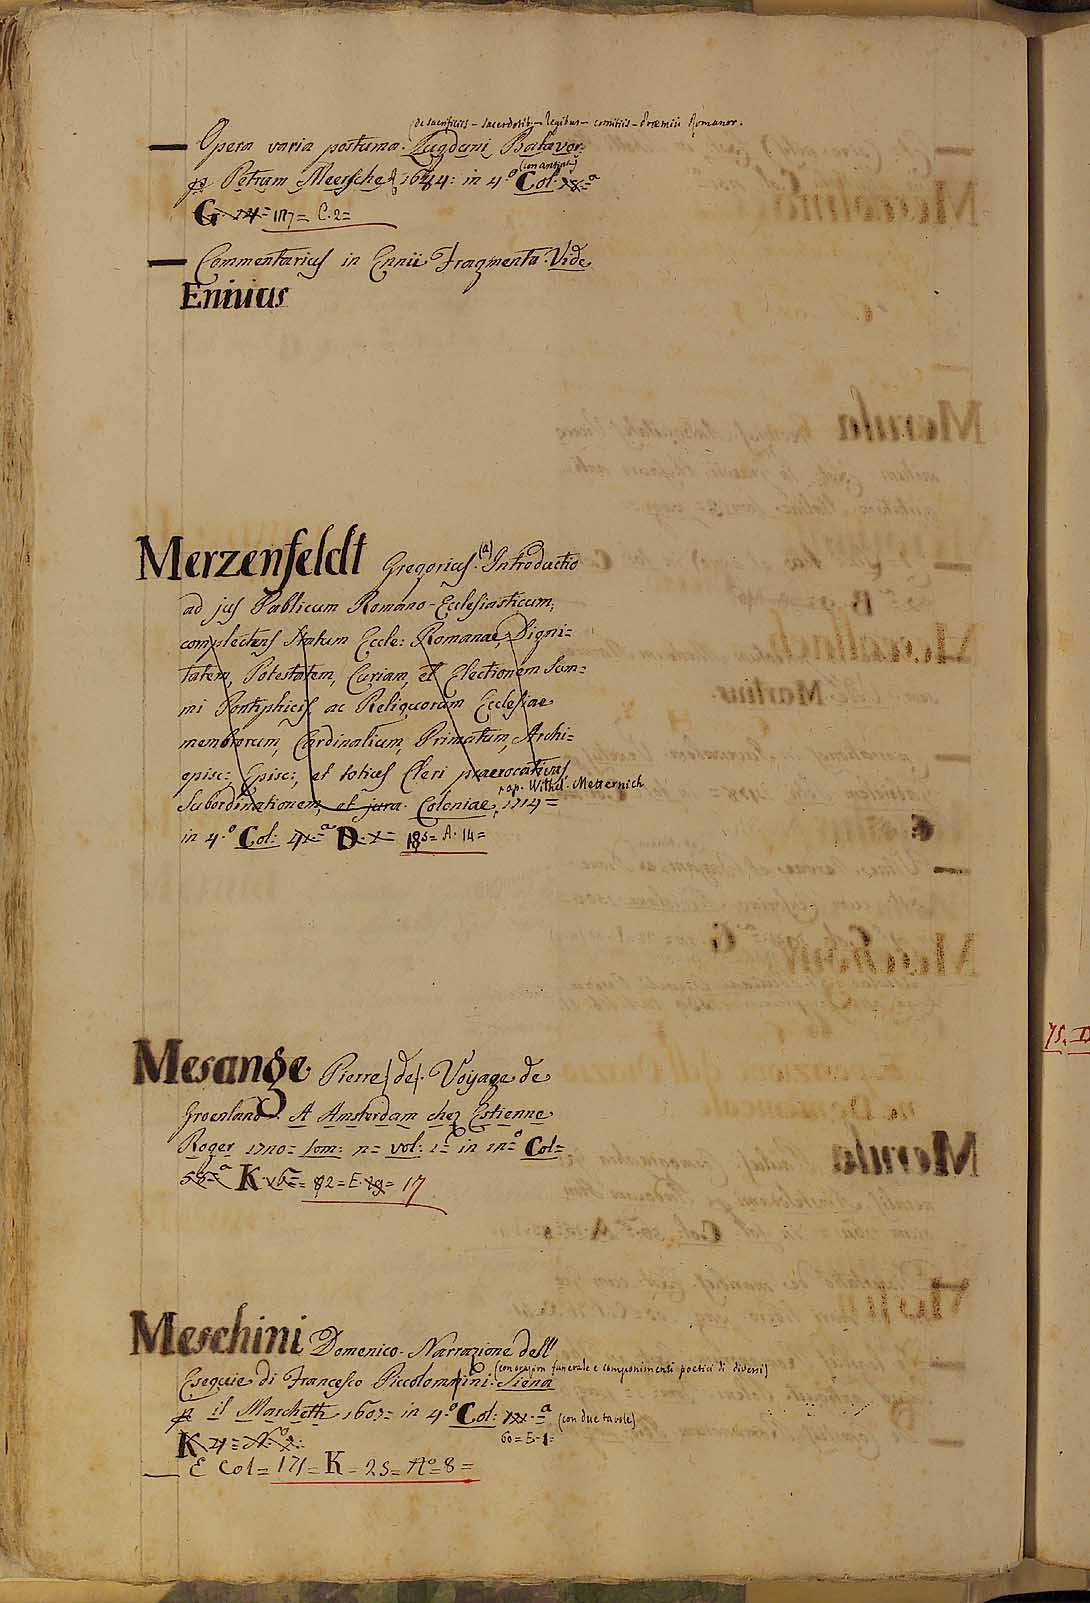 (de sacrificiis - sacerdotib - legibus - comitiis - Praemiis Romanor.
— Opera varia postuma. Lugduni Batavor:
(con antip:)
Petrum Meersche 1684: in 4.° Col:
G 117= C. 2=
— Commentarius in Ennii Fragmenta. Vide
Ennius
Merzenfeldt Gregorius. (a) Introductio
ad jus Publicum Romano-Ecclesiasticum,
complectens Statum Eccle: Romanae, Digni=
tatem, Potestatem, Curiam, et Electionem Sum=
mi Pontificis, ac Reliquorum Ecclesiae
membrorum, Cardinalium, Primatum, Archi=
episc: Episc:, et totius Cleri praerogativas,
ap. Wilhel. Metternich
Subordinationem, et jura. Coloniae, 1714=
in 4.° Col: D. 185= A. 14=
Mesange Pierre (de). Voyage de
Groenland. A Amsterdam chez Estienne
Roger 1720= tom: 2= vol: 1= in 12=° Col=
K 92= E. 17
Meschini Domenico. Narrazione dell'
(con orazion funerale e componimenti poetici di diversi)
Esequie di Francesco Piccolomini. Siena
il Marchetti 1607= in 4.° Col: (con due tavole)
K 60= E. 1=
— E Col= 171= K= 25= N° 8=
75. D